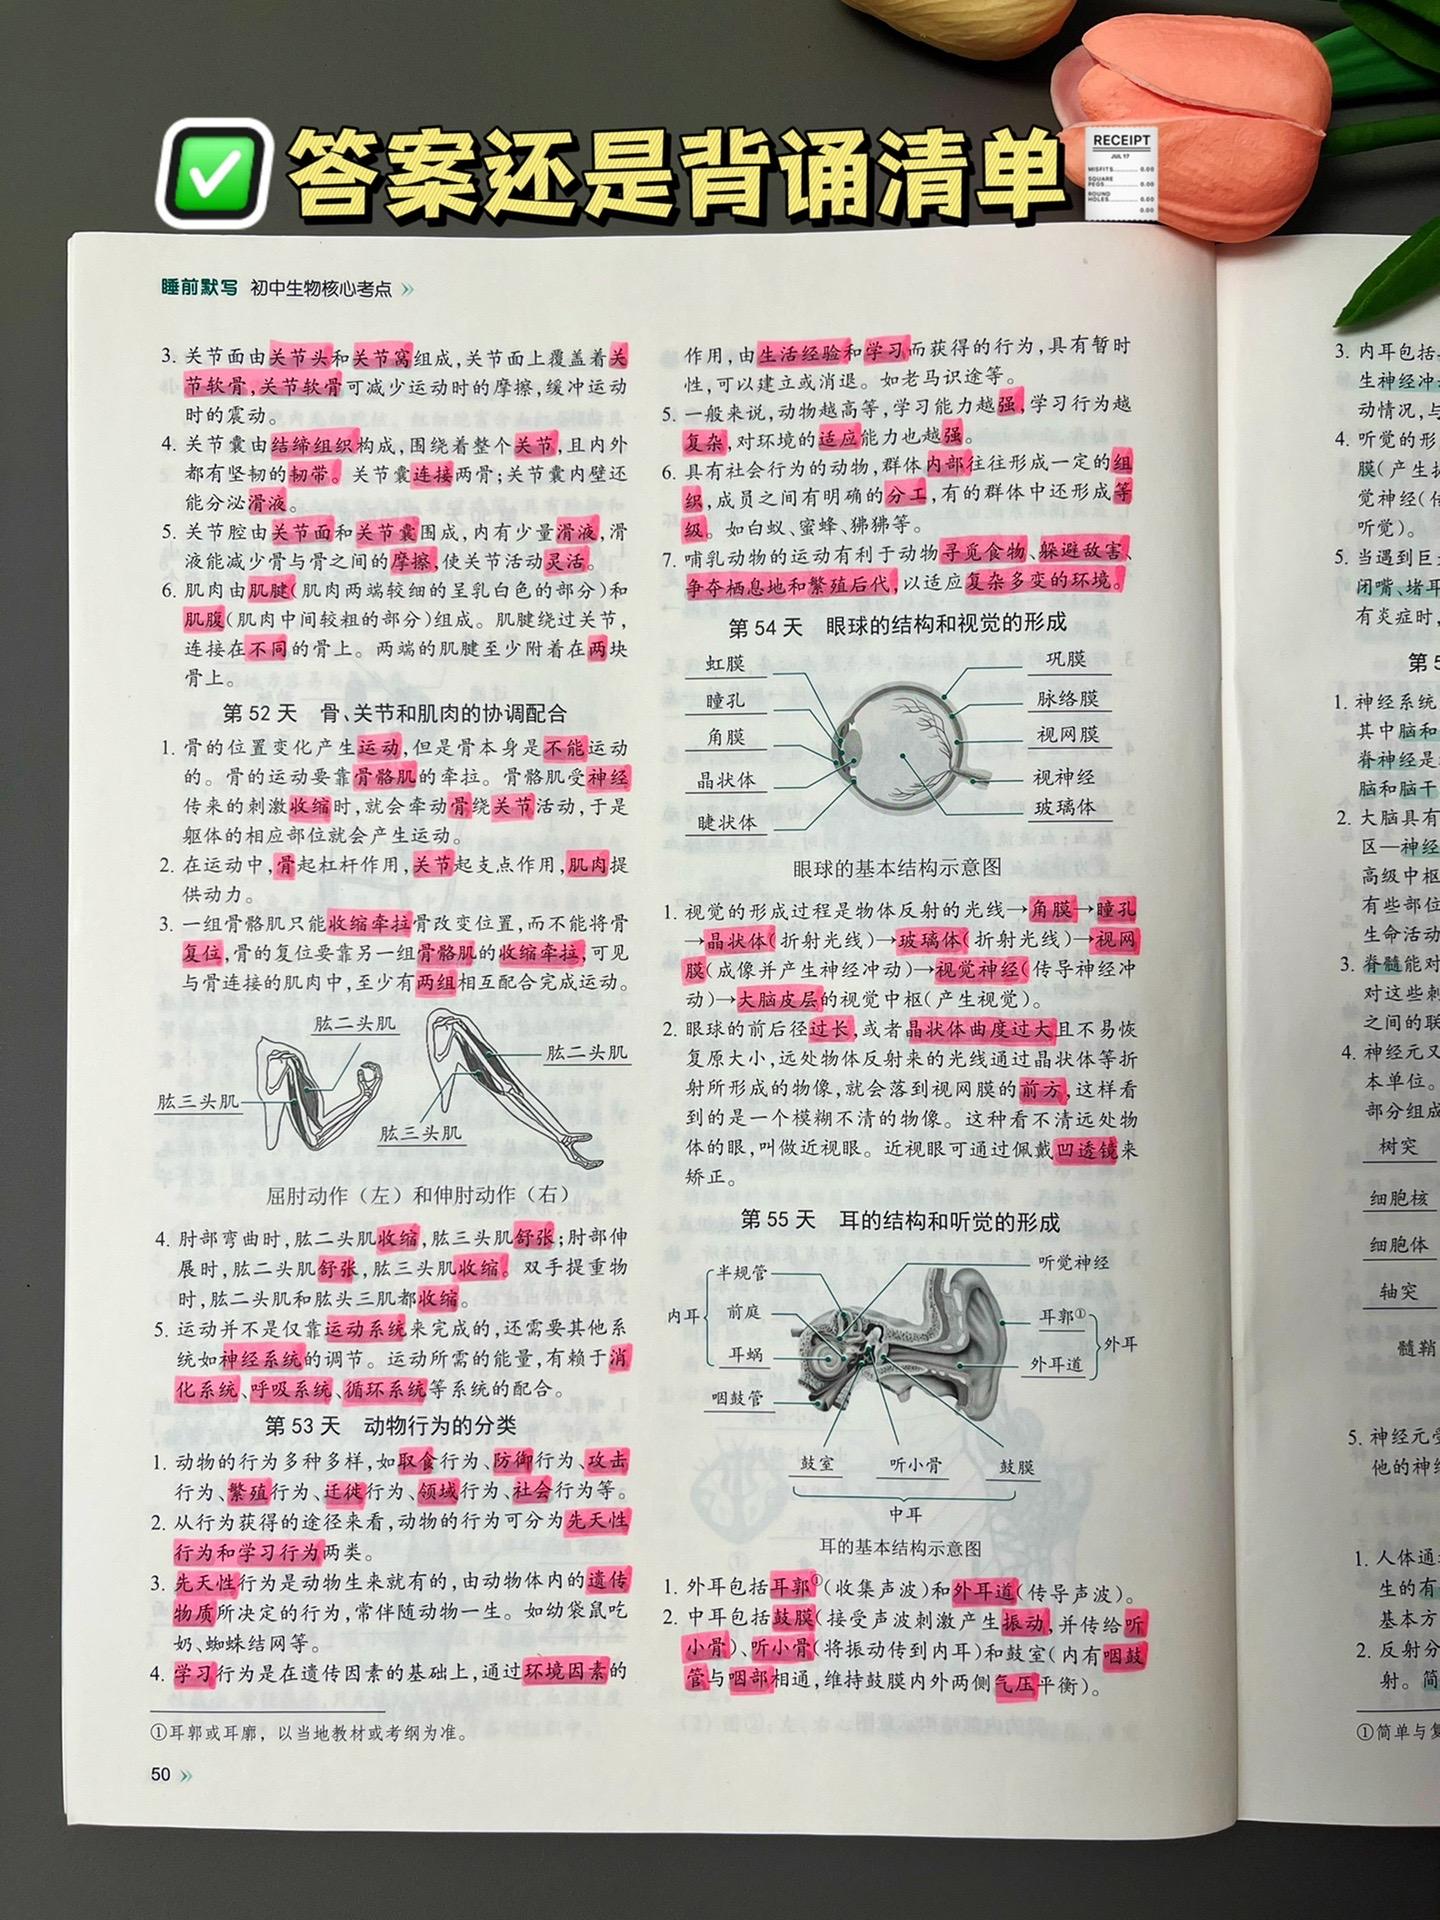 答案还是背诵清单
RECEIPT
JUL 17
MISFITS 0.00
SQUARE
PEGS 0.00
ROUND
HOLES 0.00
0.00
睡前默写 初中生物核心考点
3. 关节面由关节头和关节窝组成,关节面上覆盖着关
节软骨,关节软骨可减少运动时的摩擦,缓冲运动
时的震动。
4. 关节囊由结缔组织构成,围绕着整个关节,且内外
都有坚韧的韧带。关节囊连接两骨;关节囊内壁还
能分泌滑液。
5. 关节腔由关节面和关节囊围成,内有少量滑液,滑
液能减少骨与骨之间的摩擦,使关节活动灵活。
6. 肌肉由肌腱(肌肉两端较细的呈乳白色的部分)和
肌腹(肌肉中间较粗的部分)组成。肌腱绕过关节,
连接在不同的骨上。两端的肌腱至少附着在两块
骨上。
第 52 天 骨、关节和肌肉的协调配合
1. 骨的位置变化产生运动,但是骨本身是不能运动
的。骨的运动要靠骨骼肌的牵拉。骨骼肌受神经
传来的刺激收缩时,就会牵动骨绕关节活动,于是
躯体的相应部位就会产生运动。
2. 在运动中,骨起杠杆作用,关节起支点作用,肌肉提
供动力。
3. 一组骨骼肌只能收缩牵拉骨改变位置,而不能将骨
复位,骨的复位要靠另一组骨骼肌的收缩牵拉,可见
与骨连接的肌肉中,至少有两组相互配合完成运动。
肱二头肌
肱二头肌
肱三头肌
肱三头肌
屈肘动作（左）和伸肘动作（右）
4. 肘部弯曲时,肱二头肌收缩,肱三头肌舒张;肘部伸
展时,肱二头肌舒张,肱三头肌收缩。双手提重物
时,肱二头肌和肱头三肌都收缩。
5. 运动并不是仅靠运动系统来完成的,还需要其他系
统如神经系统的调节。运动所需的能量,有赖于消
化系统、呼吸系统、循环系统等系统的配合。
第 53 天 动物行为的分类
1. 动物的行为多种多样,如取食行为、防御行为、攻击
行为、繁殖行为、迁徙行为、领域行为、社会行为等。
2. 从行为获得的途径来看,动物的行为可分为先天性
行为和学习行为两类。
3. 先天性行为是动物生来就有的,由动物体内的遗传
物质所决定的行为,常伴随动物一生。如幼袋鼠吃
奶、蜘蛛结网等。
4. 学习行为是在遗传因素的基础上,通过环境因素的
①耳郭或耳廓，以当地教材或考纲为准。
50
作用,由生活经验和学习而获得的行为,具有暂时
性,可以建立或消退。如老马识途等。
5. 一般来说,动物越高等,学习能力越强,学习行为越
复杂,对环境的适应能力也越强。
6. 具有社会行为的动物,群体内部往往形成一定的组
织,成员之间有明确的分工,有的群体中还形成等
级。如白蚁、蜜蜂、狒狒等。
7. 哺乳动物的运动有利于动物寻觅食物、躲避敌害、
争夺栖息地和繁殖后代,以适应复杂多变的环境。
第 54 天 眼球的结构和视觉的形成
虹膜
瞳孔
角膜
晶状体
睫状体
巩膜
脉络膜
视网膜
视神经
玻璃体
眼球的基本结构示意图
1. 视觉的形成过程是物体反射的光线→角膜→瞳孔
→晶状体(折射光线)→玻璃体(折射光线)→视网
膜(成像并产生神经冲动)→视觉神经(传导神经冲
动)→大脑皮层的视觉中枢(产生视觉)。
2. 眼球的前后径过长,或者晶状体曲度过大且不易恢
复原大小,远处物体反射来的光线通过晶状体等折
射所形成的物像,就会落到视网膜的前方,这样看
到的是一个模糊不清的物像。这种看不清远处物
体的眼,叫做近视眼。近视眼可通过佩戴凹透镜来
矫正。
第 55 天 耳的结构和听觉的形成
内耳
半规管
前庭
耳蜗
咽鼓管
听觉神经
耳郭①
外耳道
外耳
鼓室
听小骨
鼓膜
中耳
耳的基本结构示意图
1. 外耳包括耳郭①(收集声波)和外耳道(传导声波)。
2. 中耳包括鼓膜(接受声波刺激产生振动,并传给听
小骨)、听小骨(将振动传到内耳)和鼓室(内有咽鼓
管与咽部相通,维持鼓膜内外两侧气压平衡)。
3. 内耳包括
生神经冲
动情况,与
4. 听觉的形
膜(产生振
觉神经(传
听觉)。
5. 当遇到巨
闭嘴、堵耳
有炎症时,
第5
1. 神经系统
其中脑和
脊神经是
脑和脑干
2. 大脑具有
区—神经
高级中枢
有些部位
生命活动
3. 脊髓能对
对这些刺
之间的联
4. 神经元又
本单位。
部分组成
树突
细胞核
细胞体
轴突
髓鞘
5. 神经元受
他的神经
1. 人体通
生的有
基本方
2. 反射分
射。简
①简单与复